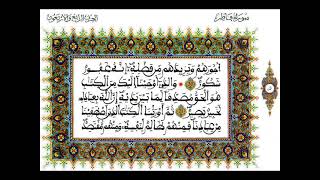 سورة فاطر
أجورهم ويزيدهم من فضله إنه غفور
شكور والذي أوحينا إليك من الكتاب
هو الحق مصدقا لما بين يديه إن الله بعباده
لخبير بصير ثم أورثنا الكتاب الذين اصطفينا
من عبادنا فمنهم ظالم لنفسه ومنهم مقتصد